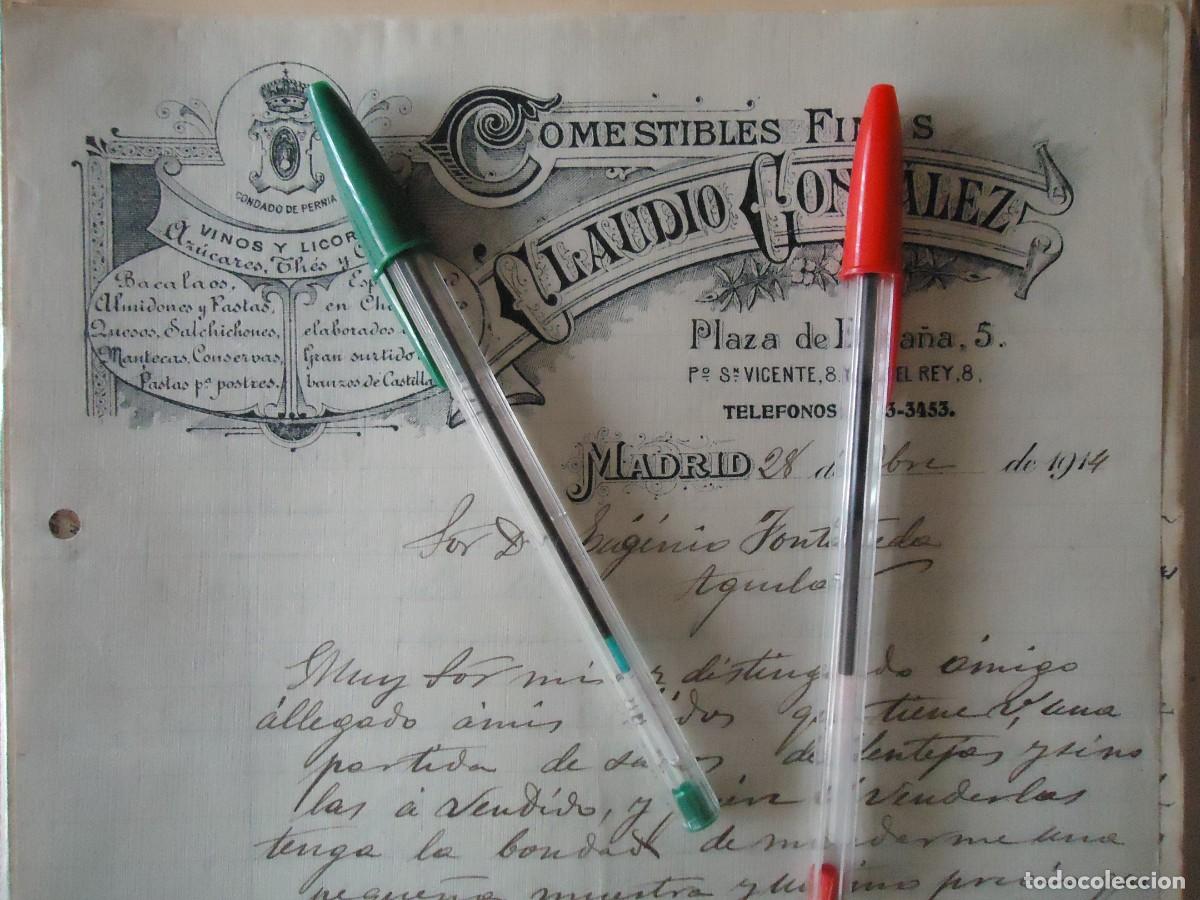 COMESTIBLES FI S
CLAUDIO GON ALEZ
CONDADO DE PERNIA
VINOS Y LICOR
Azúcares, Thés y
Bacalaos,
Almidones y Pastas,
Quesos, Salchichones,
Mantecas, Conservas,
Pastas pª postres.
Esp
en Cho
elaborados
Gran surtido
banzos de Castilla
Plaza de E aña, 5.
Pº Sⁿ VICENTE, 8 EL REY, 8.
TELEFONOS 3-3453.
MADRID 28 d bre de 1914
Sor D Eugénio Font eda
Aguila
Muy Sor mi distingu do ámigo
állegado ámis dos q tiene V, una
partida de sa s de Lentejas y sino
las á vendido, y venderlas
tenga la bondad de mandarme una
pequeña muestra y
todocoleccion